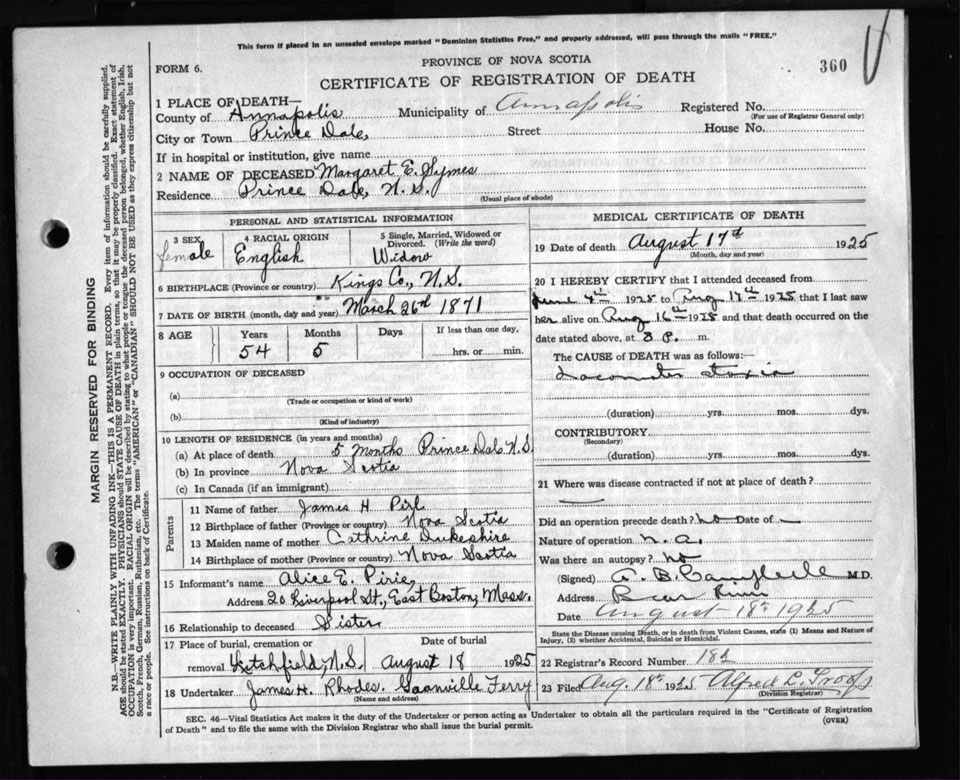 This form if placed in an unsealed envelope marked "Dominion Statistics Free," and properly addressed, will pass through the mails "FREE."
PROVINCE OF NOVA SCOTIA
FORM 6.
CERTIFICATE OF REGISTRATION OF DEATH
360
MARGIN RESERVED FOR BINDING
N.B.—WRITE PLAINLY WITH UNFADING INK—THIS IS A PERMANENT RECORD. Every item of information should be carefully supplied.
AGE should be stated EXACTLY. PHYSICIANS should STATE CAUSE OF DEATH in plain terms, so that it may be properly classified. Exact statement of
OCCUPATION is very important. RACIAL ORIGIN will be described by stating to what people or tongue the deceased person belonged, whether English, Irish,
Scotch, French, German, Russian, Ruthenian, etc. The terms "AMERICAN" or "CANADIAN" SHOULD NOT BE USED as they express citizenship but not
a race or people. See instructions on back of Certificate.
1 PLACE OF DEATH—
County of Annapolis Municipality of Annapolis Registered No.
(For use of Registrar General only)
City or Town Prince Dale, Street House No.
If in hospital or institution, give name
2 NAME OF DECEASED Margaret E. Symes
Residence Prince Dale, N.S.
(Usual place of abode)
PERSONAL AND STATISTICAL INFORMATION
3 SEX female
4 RACIAL ORIGIN English
5 Single, Married, Widowed or Divorced. (Write the word) Widow
6 BIRTHPLACE (Province or country) Kings Co., N.S.
7 DATE OF BIRTH (month, day and year) March 26th 1871
8 AGE Years Months Days If less than one day,
54 5 hrs. or min.
9 OCCUPATION OF DECEASED
(a)
(Trade or occupation or kind of work)
(b)
(Kind of industry)
10 LENGTH OF RESIDENCE (in years and months)
(a) At place of death 5 months Prince Dale N.S.
(b) In province Nova Scotia
(c) In Canada (if an immigrant)
Parents
11 Name of father James H.
12 Birthplace of father (Province or country) Nova Scotia
13 Maiden name of mother Cathrine Dukeshire
14 Birthplace of mother (Province or country) Nova Scotia
15 Informant's name Alice E. Pirie
Address 20 Liverpool St., East Boston, Mass.
16 Relationship to deceased Sister
17 Place of burial, cremation or Date of burial
removal Litchfield, N.S. August 18 1925
18 Undertaker James H. Rhodes. Granville Ferry
(Name and address)
MEDICAL CERTIFICATE OF DEATH
19 Date of death August 17th 1925
(Month, day and year)
20 I HEREBY CERTIFY that I attended deceased from
June 4th 1925 to Aug 17th 1925 that I last saw
her alive on Aug 16th 1925 and that death occurred on the
date stated above, at 3 P. m.
The CAUSE OF DEATH was as follows:—
(duration) yrs. mos. dys.
CONTRIBUTORY
(Secondary)
(duration) yrs. mos. dys.
21 Where was disease contracted if not at place of death?
—
Did an operation precede death? no Date of —
Nature of operation n.a.
Was there an autopsy? no
(Signed) M.D.
Address Bear River
Date August 18th 1925
State the Disease causing Death, or in death from Violent Causes, state (1) Means and Nature of
Injury, (2) whether Accidental, Suicidal or Homicidal.
22 Registrar's Record Number
23 Filed Aug. 18th 1925 Alfred
(Division Registrar)
SEC. 46—Vital Statistics Act makes it the duty of the Undertaker or person acting as Undertaker to obtain all the particulars required in the "Certificate of Registration
of Death" and to file the same with the Division Registrar who shall issue the burial permit.
(OVER)